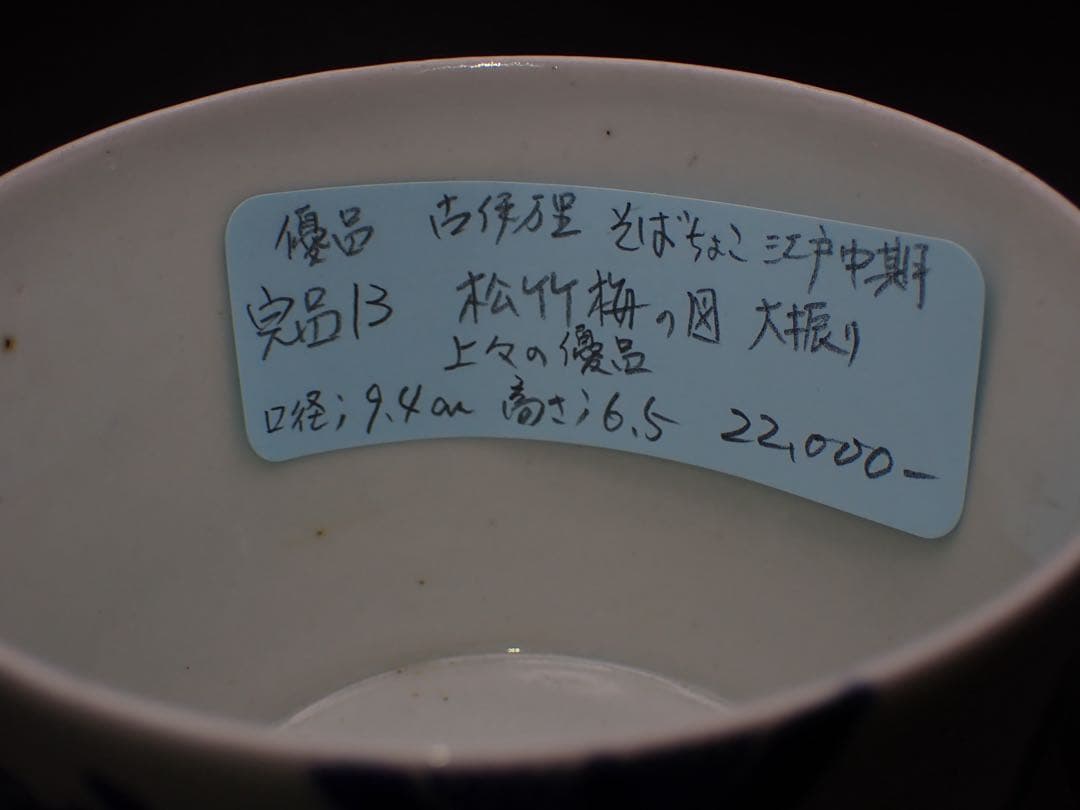 優品 古伊万里 そばちょこ 江戸中期
完品13 松竹梅の図 大振り
上々の優品
口径;9.4cm 高さ;6.5 22,000-